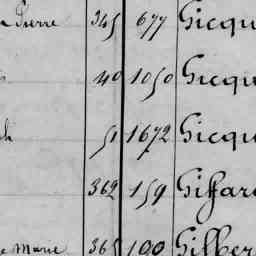 Pierre 345 677 Gicqu
40 1050 Gicqu
51 1672 Gicqu
362 159 Giffar
Marie 365 100 Gilber